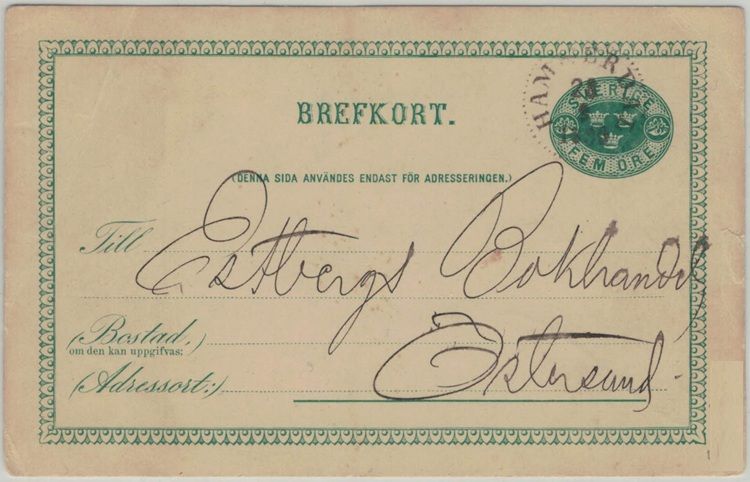 BREFKORT.
SVERIGE
FEM ÖRE
(DENNA SIDA ANVÄNDES ENDAST FÖR ADRESSERINGEN.)
Till Estbergs Bokhandel
(Bostad,
om den kan uppgifvas;)
Östersund
(Adressort:)